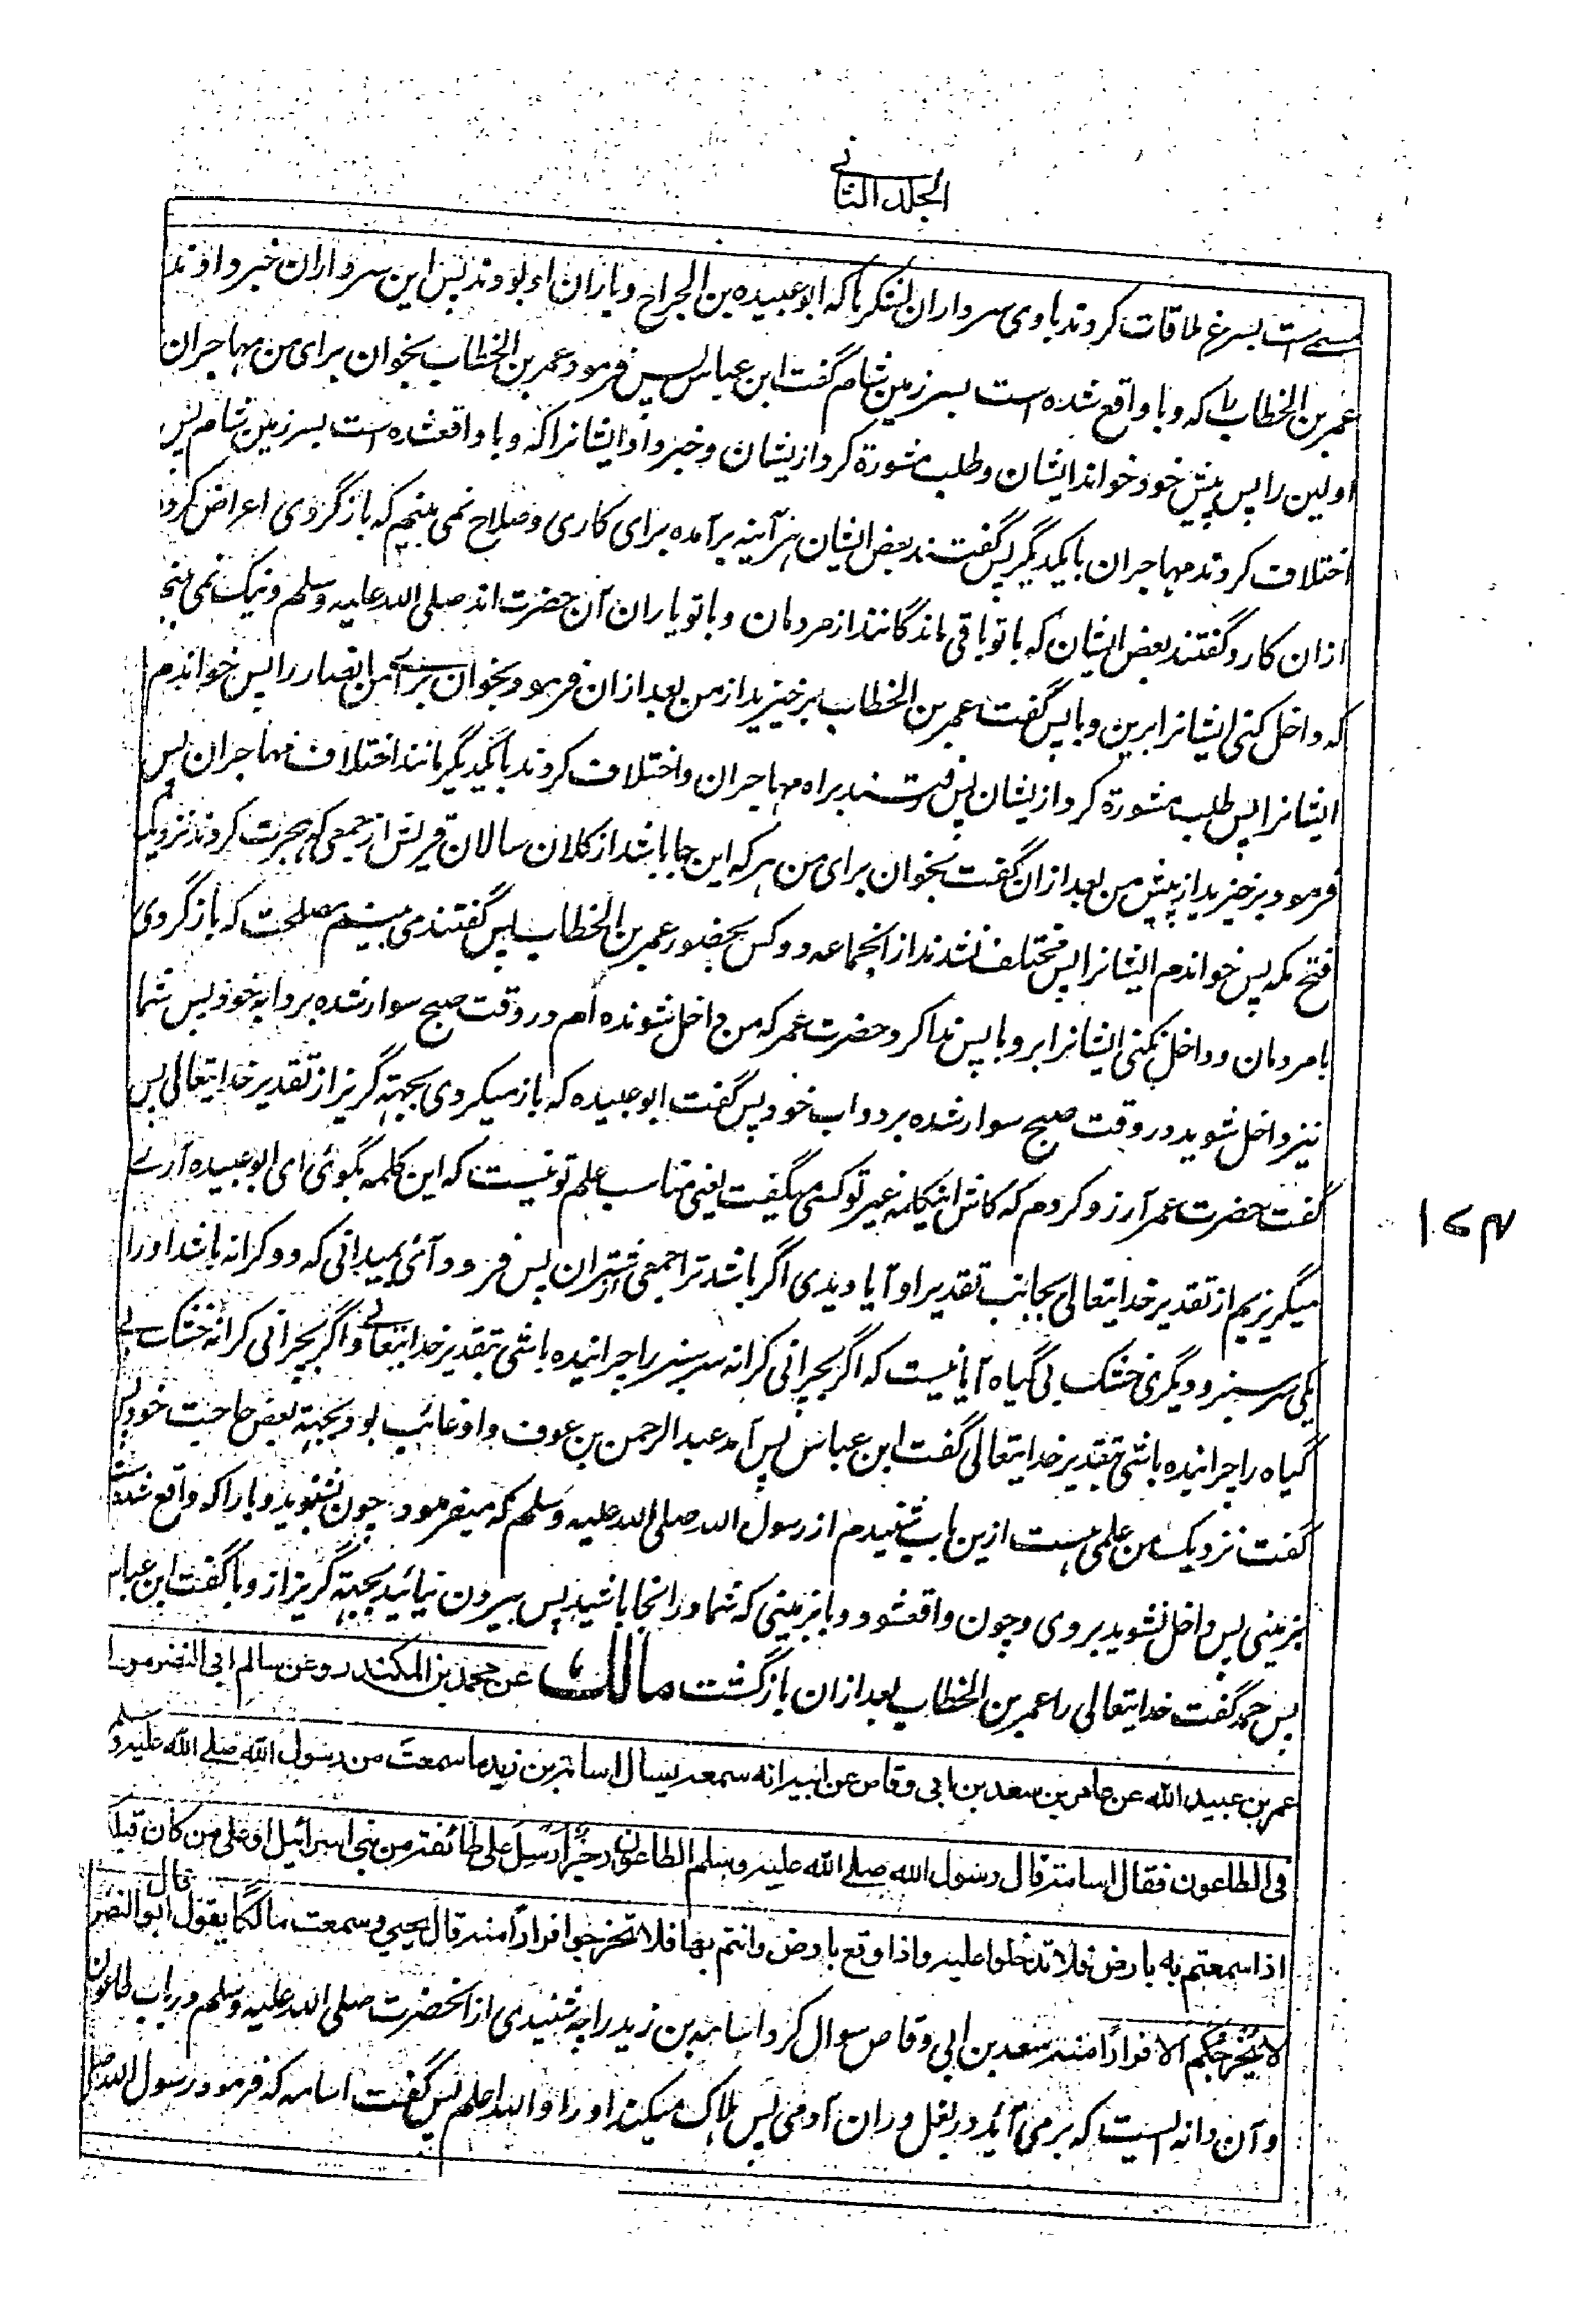 الجلد الثانی
مسمے است بسرغ ملاقات کردند باوی سرداران لشکرها که ابوعبیده بن الجراح و یاران او بودند پس این سرداران خبر دادند
عمر بن الخطاب را که وبا واقع شده است بسرزمین شام گفت ابن عباس پس فرمود عمر بن الخطاب بخوان برای من مهاجران
اولین را پس پیش خود خواند ایشان و طلب مشورة کرد ازیشان و خبر داد ایشانرا که وبا واقعشده است بسرزمین شام پس
اختلاف کردند مهاجران بایکدیگر پس گفتند بعض ایشان هر آئینه برآمده برای کاری و صلاح نمی بینم که بازگردی اعراض کرده
ازان کار و گفتند بعض ایشان که با تو باقی ماندگانند از مردمان و با تو یاران آن حضرت اند صلی الله علیه وسلم و نیک نمی بینم
که داخل کنی ایشانرا برین وبا پس گفت عمر بن الخطاب برخیزید از من بعد ازان فرمود بخوان برائے من انصار را پس خواندم
ایشانرا پس طلب مشورة کرد ازیشان پس رفتند براه مهاجران و اختلاف کردند بایکدیگر مانند اختلاف مهاجران پس
فرمود برخیزید از پیش من بعد ازان گفت بخوان برای من هر که این جا باشد از کلان سالان قریش از جمعی که هجرت کردند نزدیک
فتح مکه پس خواندم ایشانرا پس مختلف نشدند ازانجماعه دو کس بحضور عمر بن الخطاب پس گفتند می بینیم مصلحت که بازگردی
با مردمان و داخل نکنی ایشانرا برو با پس ندا کرد حضرت عمر که من داخل شونده ام در وقت صبح سوار شده بر دابه خود پس شما
نیز داخل شوید در وقت صبح سوار شده بر دواب خود پس گفت ابوعبیده که باز میگردی بجهته گریز از تقدیر خدایتعالی پس
گفت حضرت عمر آرزو کردم که کاش اینکلمه غیر تو کسی میگفت یعنی مناسب علم تو نیست که این کلمه بگوئی ای ابوعبیده آرے
میگریزیم از تقدیر خدایتعالی بجانب تقدیر او آیا دیدی اگر باشد ترا جمعی از شتران پس فرود آئی بمیدانی که دو کرانه باشد اورا
یکی سرسبز و دیگری خشک بی گیاه آیا نیست که اگر بچرانی کرانه سرسبز را چرانیده باشی بتقدیر خدایتعالے و اگر بچرانی کرانه خشک بے
گیاه را چرانیده باشی بتقدیر خدایتعالی گفت ابن عباس پس آمد عبد الرحمن بن عوف و او غائب بود بجهته بعض حاجت خود پس
گفت نزدیک من علمی هست ازین باب شنیدم از رسول الله صلی الله علیه وسلم که میفرمود چون بشنوید وبا را که واقع شده است
بزمینی پس داخل نشوید بروی و چون واقعشود وبا بزمینی که شما درانجا باشید پس بیرون نیائید بجهته گریز از وبا گفت ابن عباس
پس حمد گفت خدایتعالی را عمر بن الخطاب بعد ازان بازگشت مالك عن محمد بن المکندر وعن سالم ابی النضر مولی
عمر بن عبید الله عن عامر بن سعد بن ابی وقاص عن ابیه انه سمعه یسال اسامة بن زید ما سمعت من رسول الله صلے الله علیه وسلم
فی الطاعون فقال اسامة قال رسول الله صلے الله علیه وسلم الطاعون رجز ارسل علی طائفة من بنی اسرائیل او علی من کان قبلکم
اذا سمعتم به بارض فلا تدخلوا علیه واذا وقع بارض وانتم بها فلا تخرجوا فرارا منه قال یحیی وسمعت مالکا یقول قال ابو النضر
لا یخرجکم الا فرارا منه سعد بن ابی وقاص سوال کرد اسامه بن زید را چه شنیدی از آنحضرت صلی الله علیه وسلم در باب طاعون
و آن دانه ایست که برمی آید در بغل و ران آدمی پس هلاک میکند اورا والله اعلم پس گفت اسامه که فرمود رسول الله صلی
۱۷۴